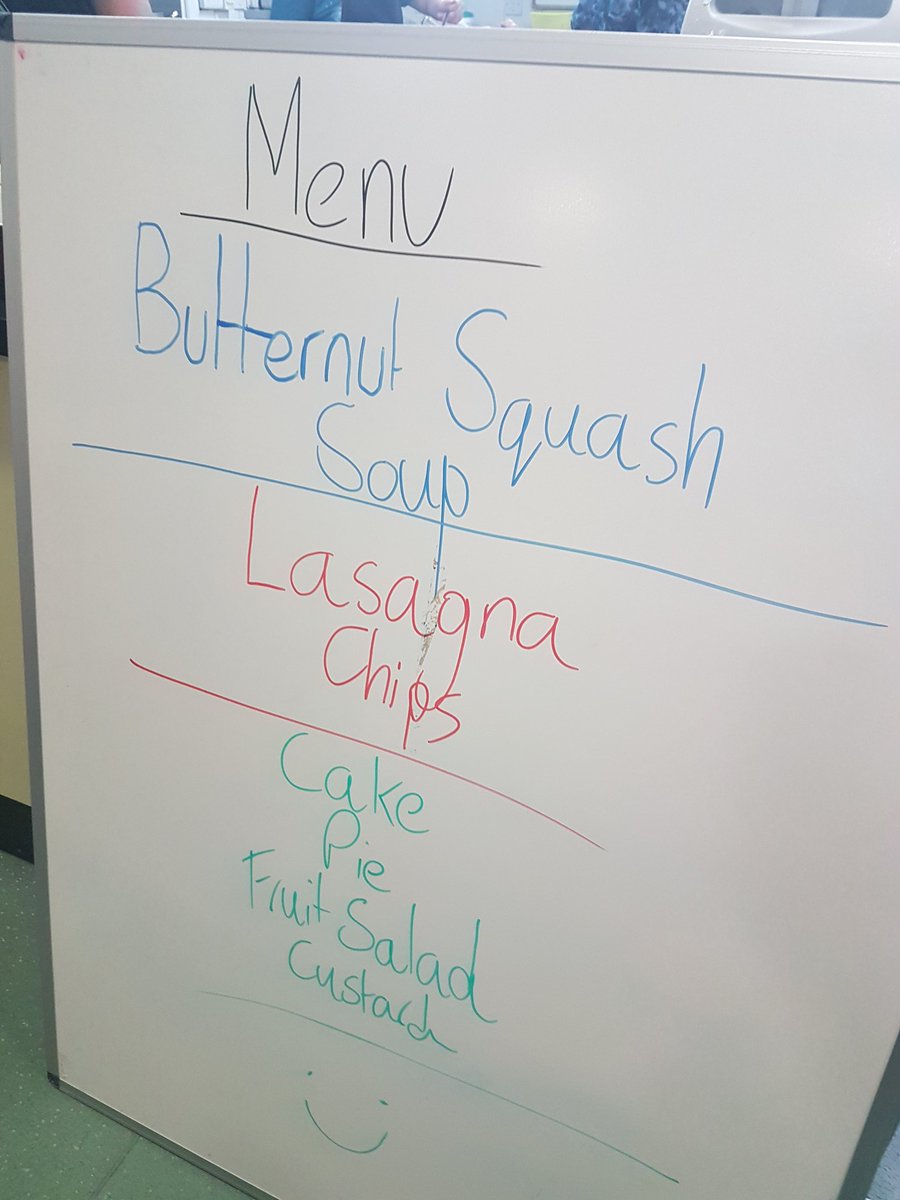 Menu
Butternut Squash
Soup
Lasagna
Chips
Cake
Pie
Fruit Salad
Custard